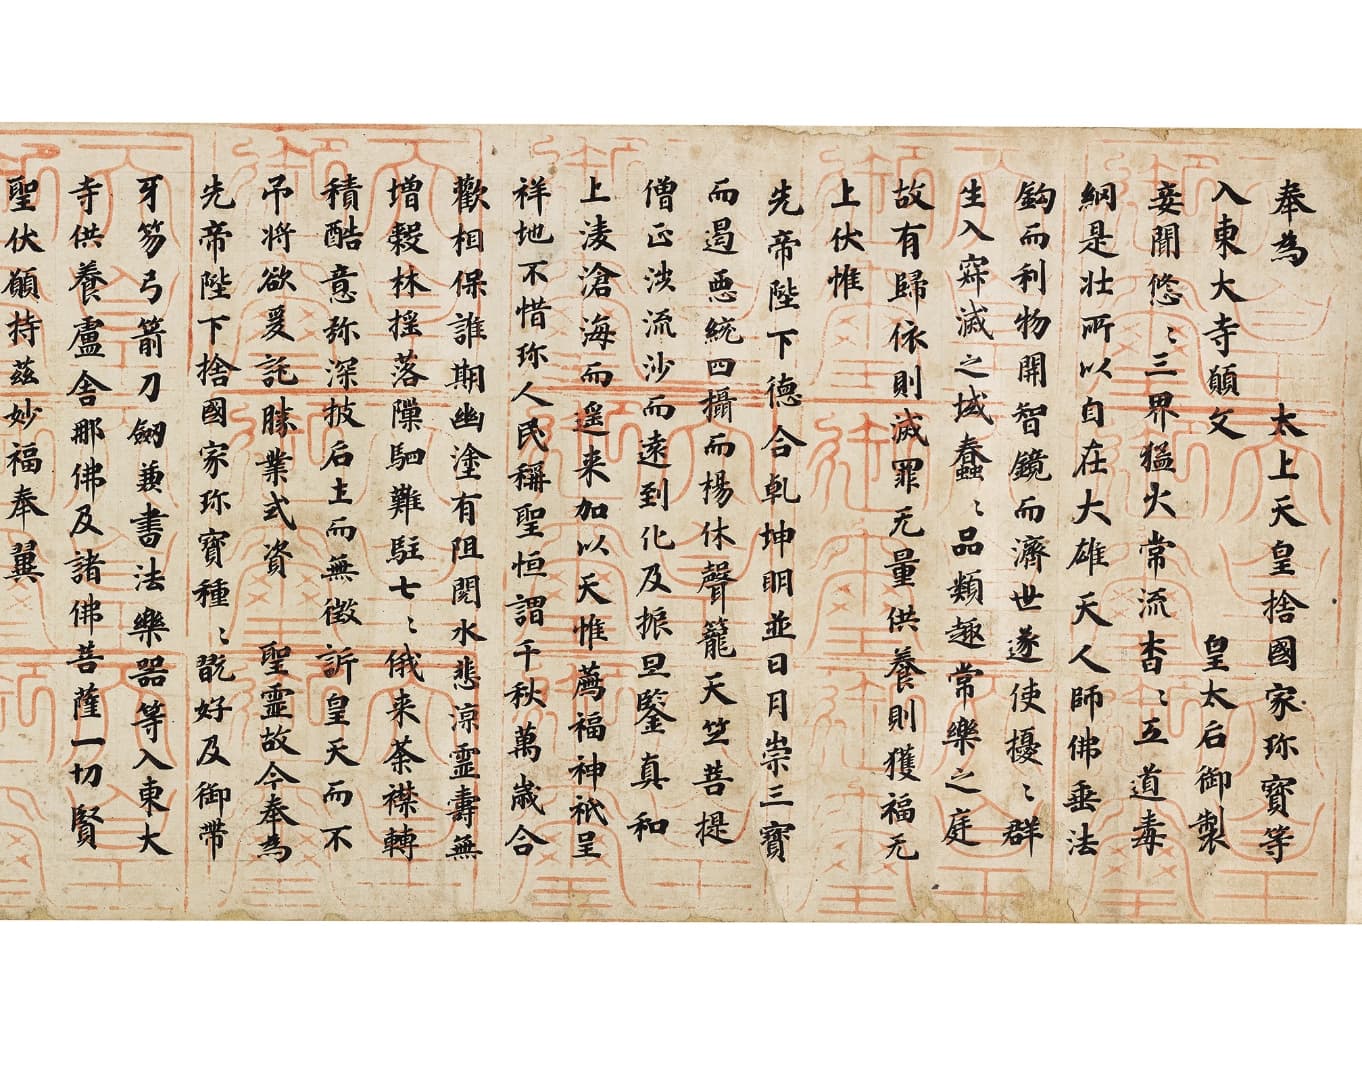 奉為 太上天皇捨國家珎寶等
入東大寺願文 皇太后御製
妾聞悠〻三界猛火常流杳〻五道毒
網是壮所以自在大雄天人師佛垂法
鈎而利物開智鏡而濟世遂使擾〻群
生入寂滅之域蠢〻品類趣常樂之庭
故有歸依則滅罪无量供養則獲福无
上伏惟
先帝陛下德合乹坤明並日月崇三寳
而遏惡統四攝而楊休聲籠天竺菩提
僧正涉流沙而遠到化及振旦鑒真和
上凌滄海而遥来加以天惟薦福神祇呈
祥地不惜珎人民稱聖恒謂千秋萬歳合
歡相保誰期幽塗有阻閱水悲涼靈壽無
増穀林揺落隟駟難駐七〻俄来荼襟轉
積酷意弥深披后土而無徴訴皇天而不
吊将欲爰託勝業式資 聖靈故今奉為
先帝陛下捨國家珎寶種〻翫好及御帶
牙笏弓箭刀劔兼書法樂器等入東大
寺供養盧舎那佛及諸佛菩薩一切賢
聖伏願持茲妙福奉翼